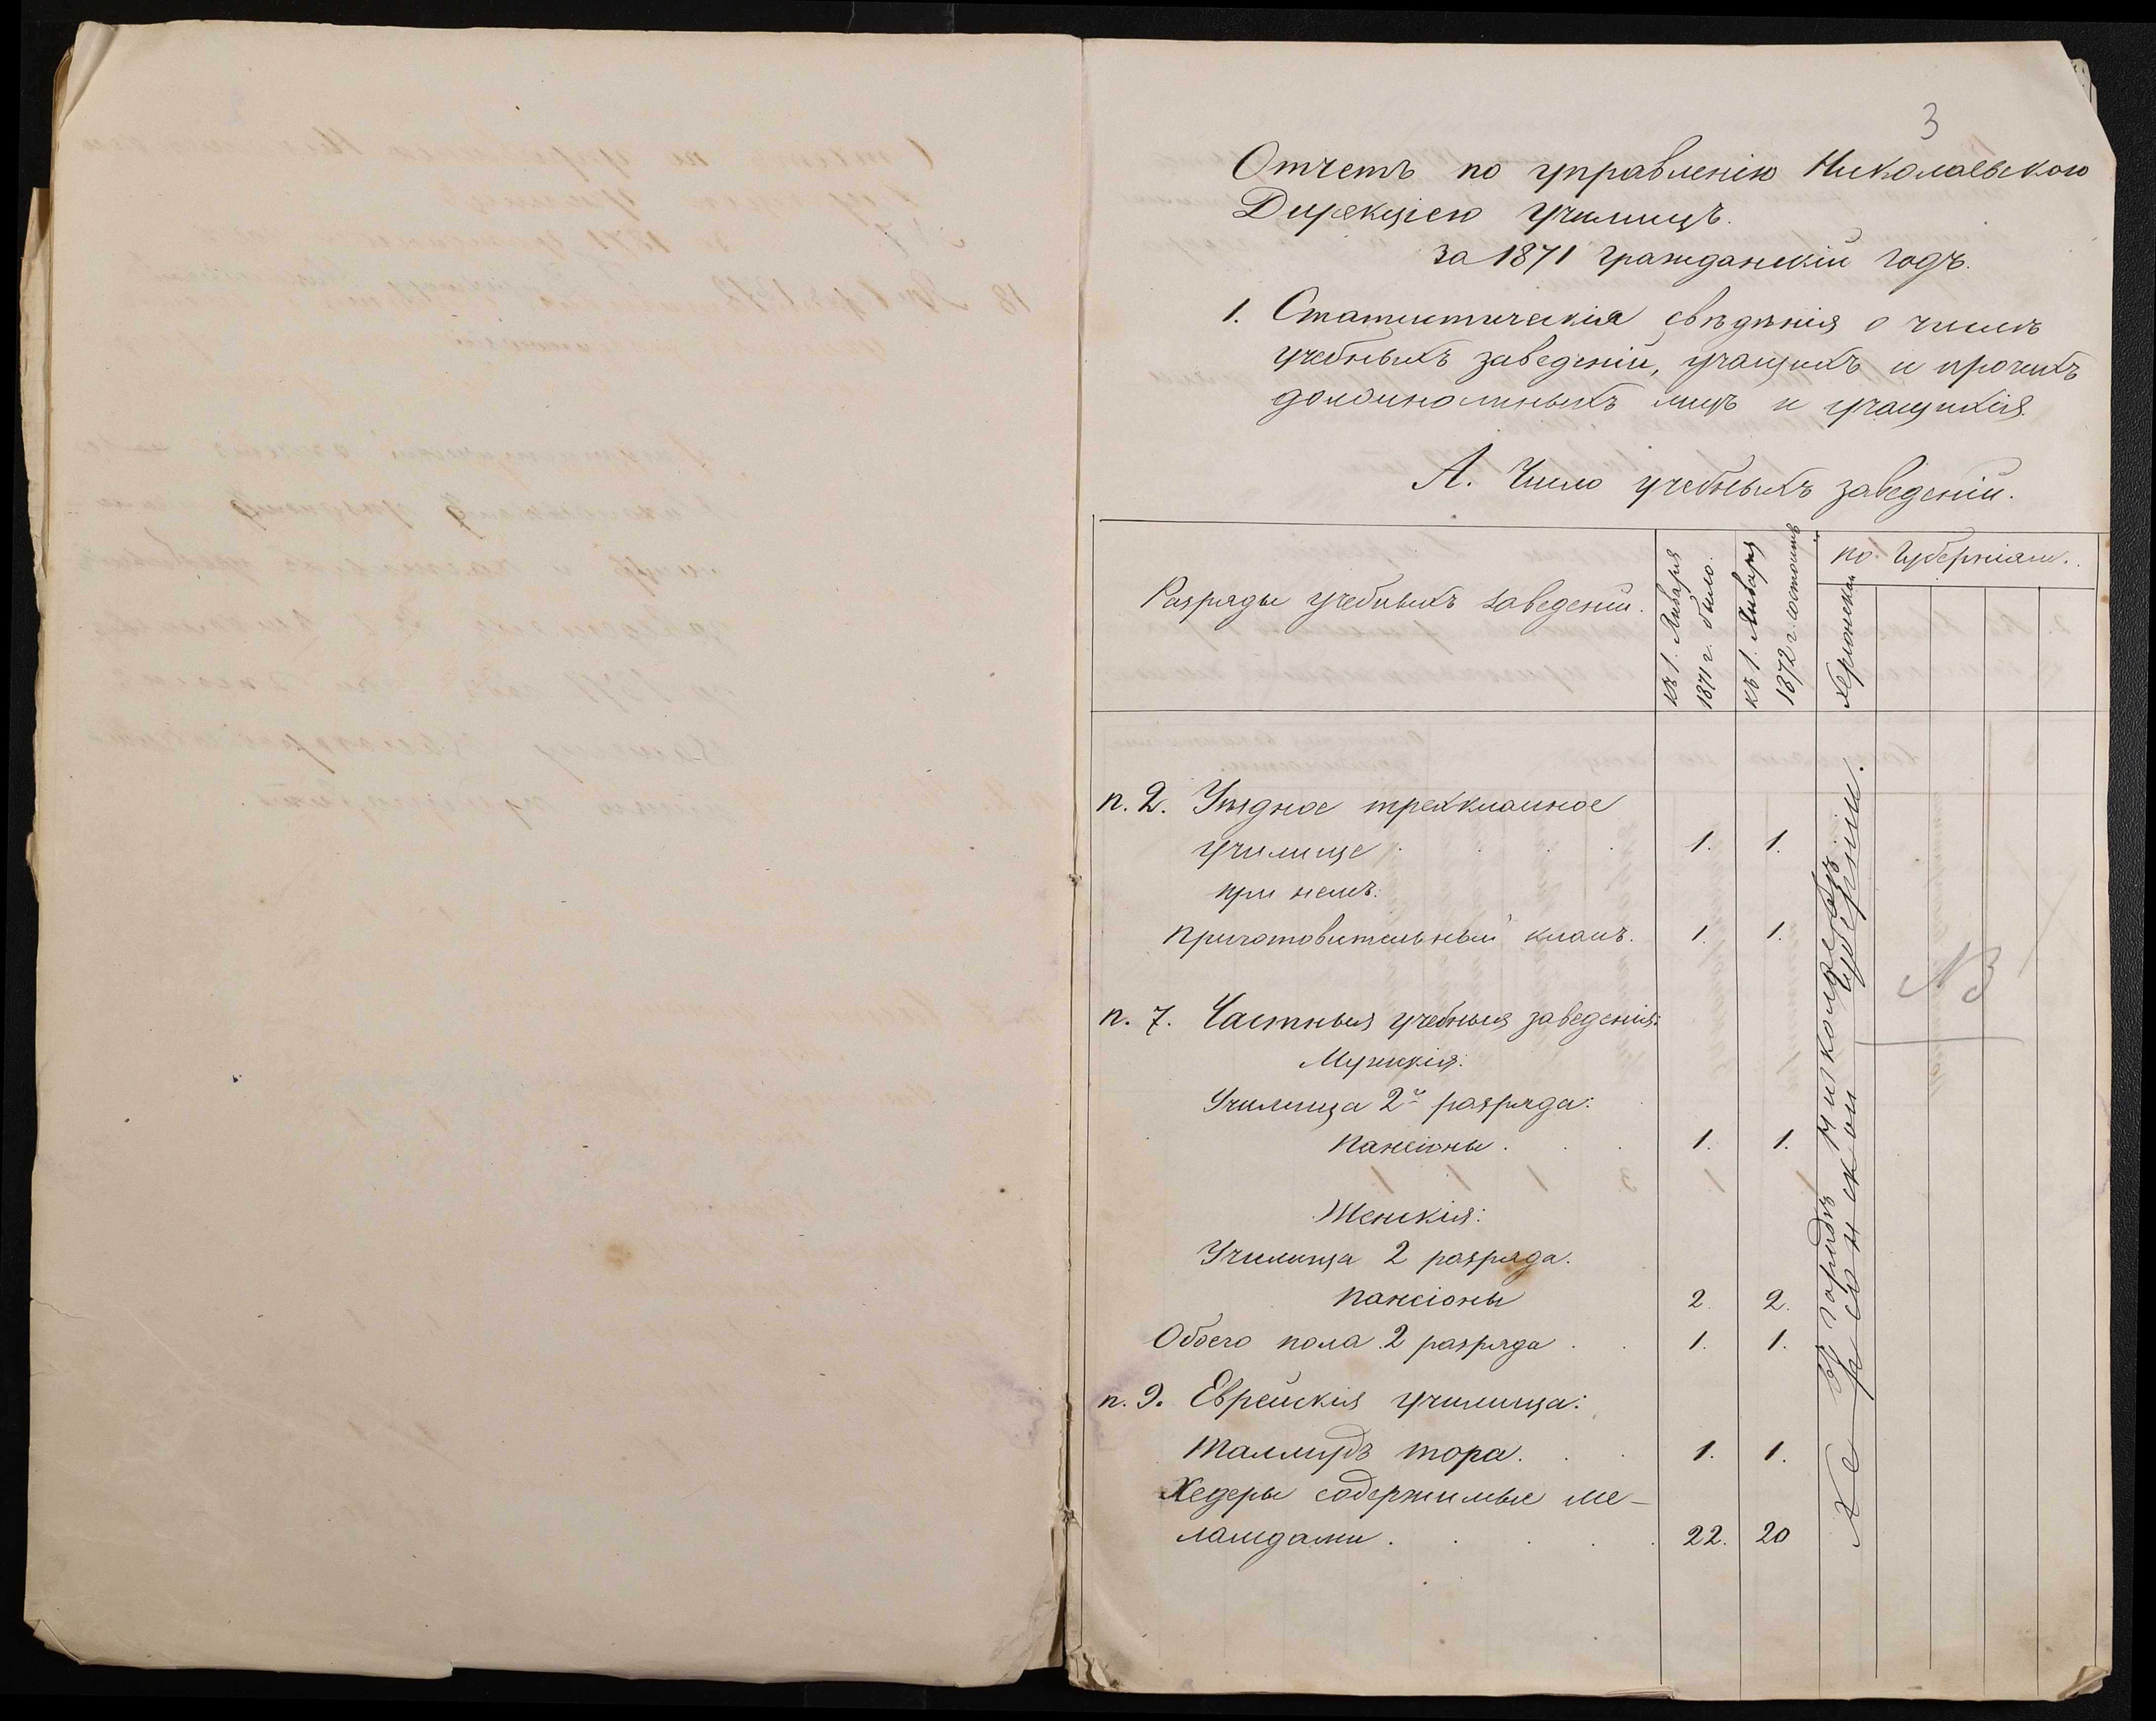 3
Отчетъ по управленію Николаевскою
Дирекціею училищъ.
за 1871 гражданскій годъ.
1. Статистическія свѣдѣнія о числѣ
учебныхъ заведеній, учащихъ и прочихъ
должностныхъ лицъ и учащихся.
А. Число учебныхъ заведеній.
Разряды учебныхъ заведеній.
къ 1. Января
1871 г. было.
къ 1. Января
1872 г. состоитъ
по Губерніям.
Херсонская
п. 2. Уѣздное трехклассное
училище . . . 1. 1.
при немъ:
Приготовительный классъ. 1. 1.
п. 7. Частныя учебныя заведенія:
Мужскія:
Училища 2го разряда:
Пансіоны . . . 1. 1.
Женскія:
Училища 2 разряда.
Пансіоны 2. 2.
Обоего пола 2 разряда . . 1. 1.
п. 9. Еврейскія училища:
Талмудъ тора. . . 1. 1.
Хедеры содержимые ме-
ламдами . . . . . 22. 20
Въ городѣ Николаевѣ
Херсонской Губерніи.
NB